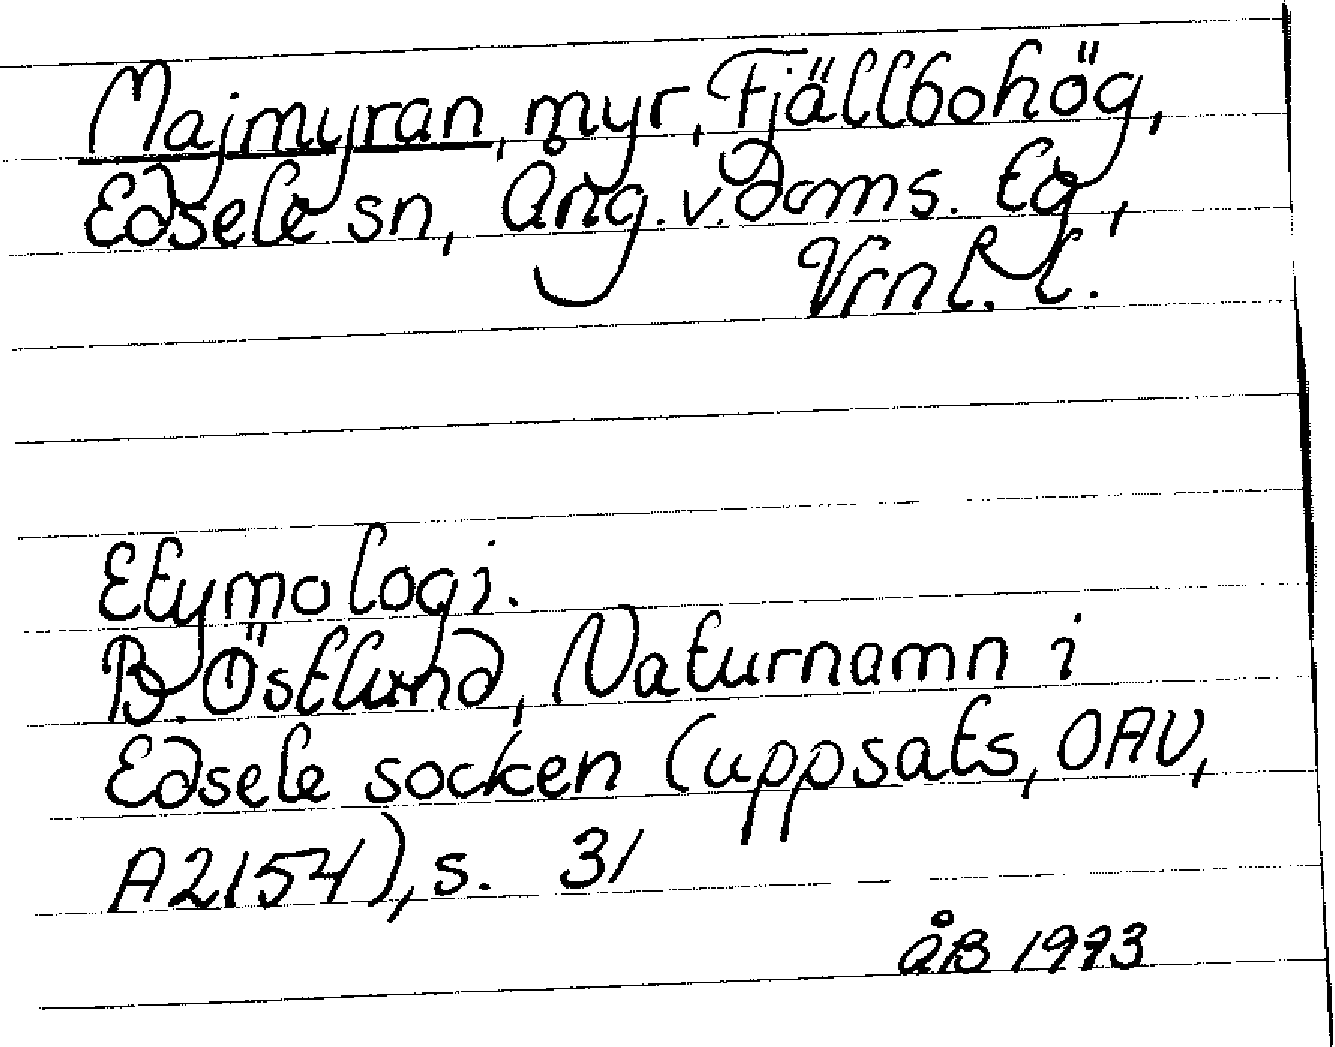 Majmyran, myr, Fjällbohög,
Edsele sn, Ång. v. doms. Eg,
Vrnl. l.
Etymologi.
B. Östlund, Naturnamn i
Edsele socken (uppsats, OAU,
A2154), s. 31
ÅB 1973